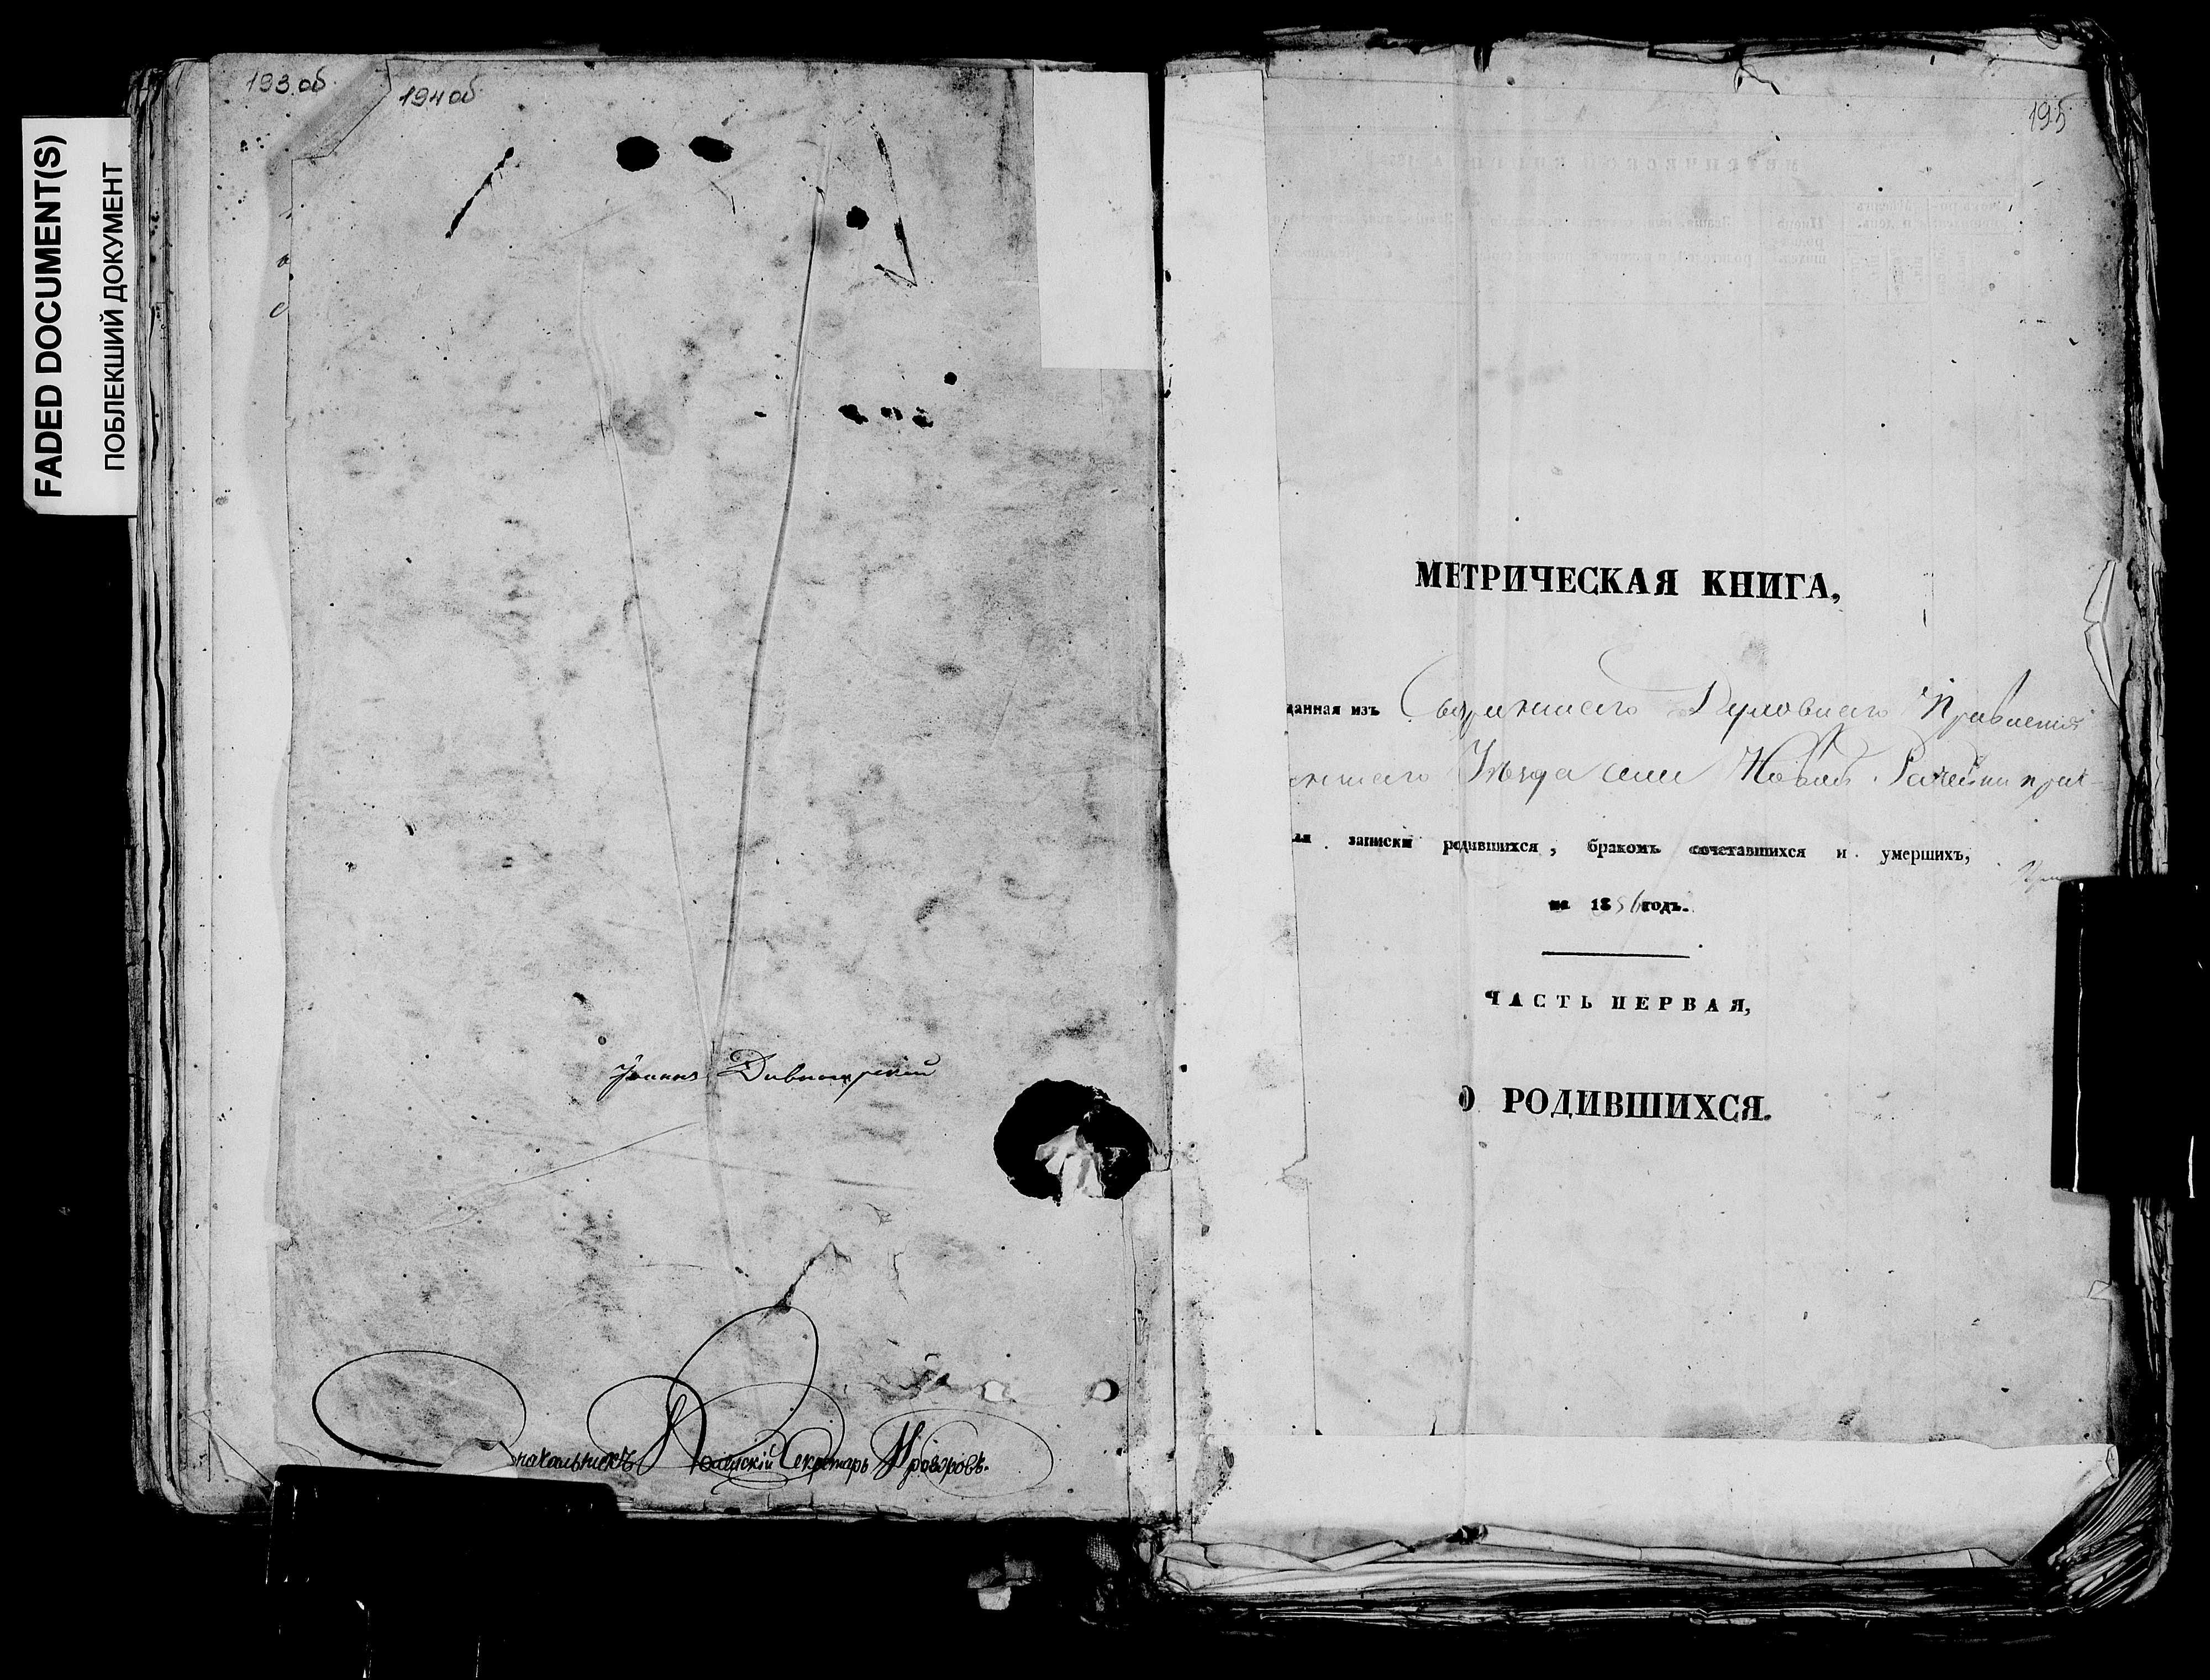 FADED DOCUMENT(S)
ПОБЛЕКШИЙ ДОКУМЕНТ
193 об
194 об
Дивногорский
Секретарь
195
МЕТРИЧЕСКАЯ КНИГА,
данная изъ Сызранскаго Духовнаго Правленія
Уѣзда села Новой Рачейки
записки родившихся, бракомъ сочетавшихся и умершихъ,
на 1856 годъ.
ЧАСТЬ ПЕРВАЯ,
О РОДИВШИХСЯ.